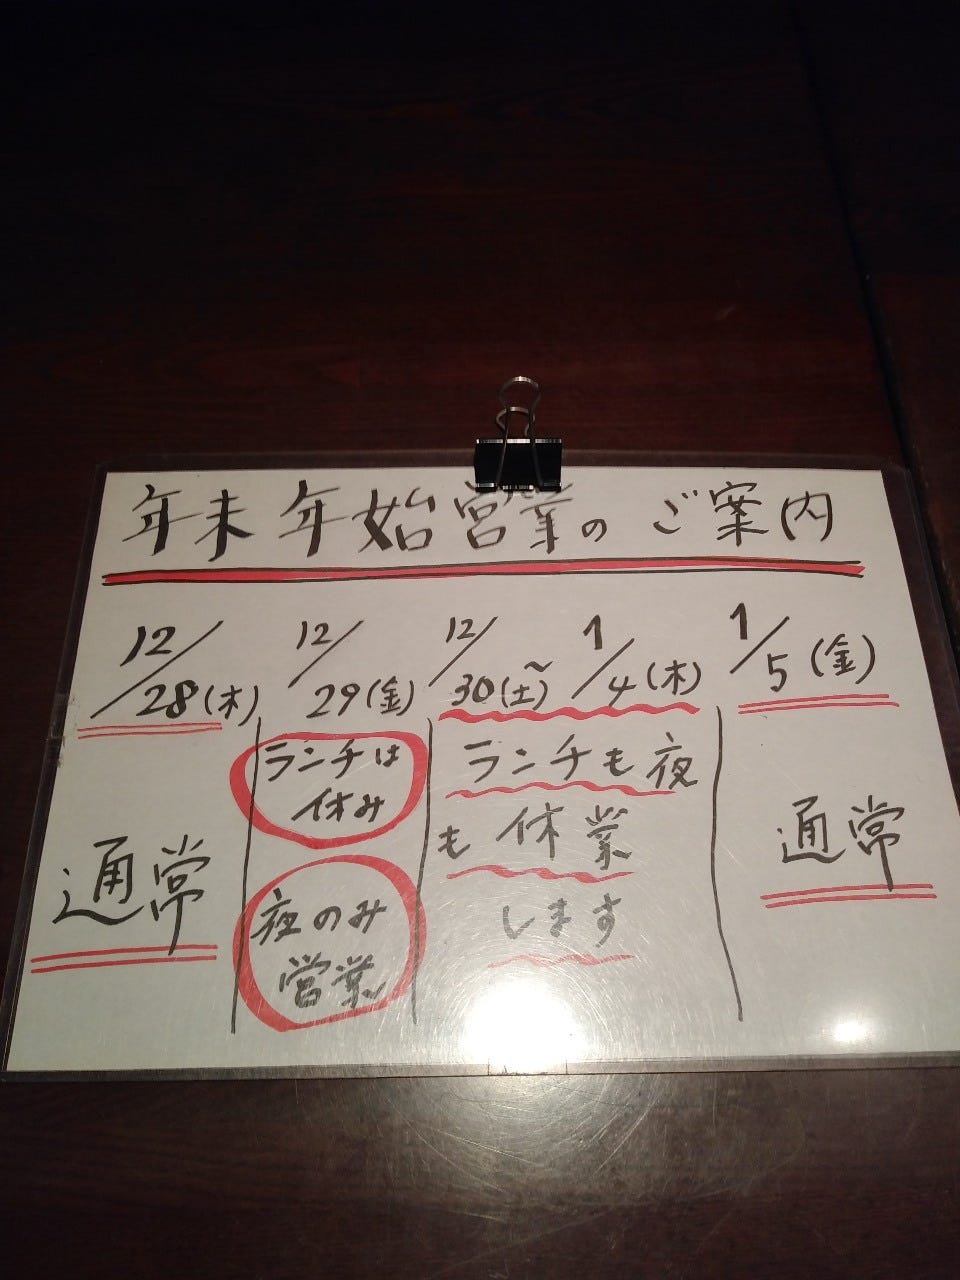 年末年始営業のご案内
12/28(木)
通常
12/29(金)
ランチは
休み
夜のみ
営業
12/30(土)~1/4(木)
ランチも夜
も休業
します
1/5(金)
通常